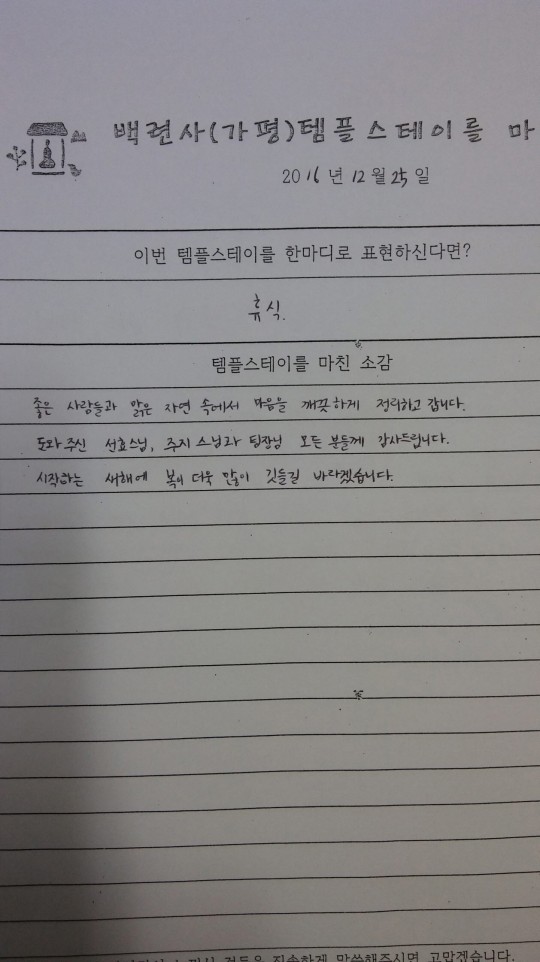 백련사(가평)템플스테이를 마
2016년 12월 25일
이번 템플스테이를 한마디로 표현하신다면?
휴식.
템플스테이를 마친 소감
좋은 사람들과 맑은 자연 속에서 마음을 깨끗하게 정리하고 갑니다.
도와주신 선효스님, 주지스님과 팀장님 모든 분들께 감사드립니다.
시작하는 새해에 복이 더욱 많이 깃들길 바라겠습니다.
점들은 진솔하게 말씀해주시면 고맙겠습니다.